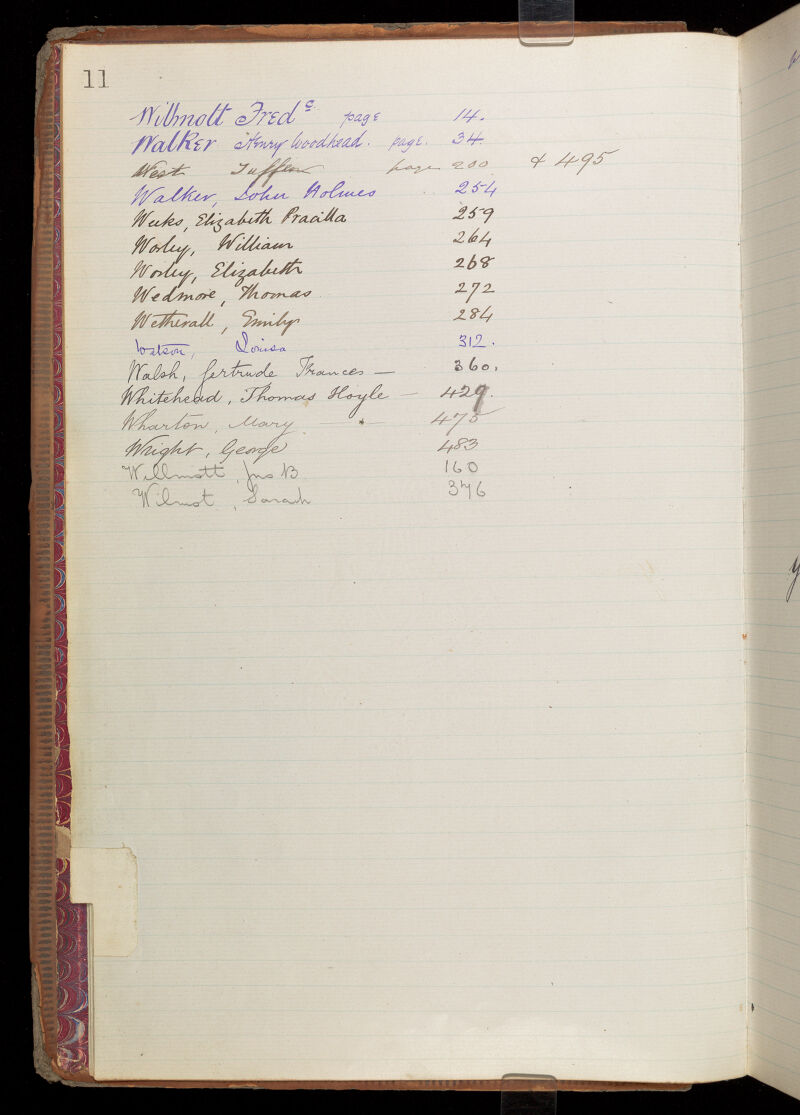 11
Wilmott Fredc page 14.
Walker Henry Woodhead. page. 34.
West Tuffen page 200 & 495
Walker, John Holmes 254
Weeks, Elizabeth Pracilla 259
Worley, William 264
Worley, Elizabeth 268
Wedmore, Thomas 272
Wetherall, Emily 284
Watson, Louisa 312.
Walsh, Gertrude Frances — 360.
Whitehead, Thomas Hoyle — 429.
Wharton, Mary — 475
Wright, George 483
Willmott, Jno B 160
Wilmot, Sarah 376